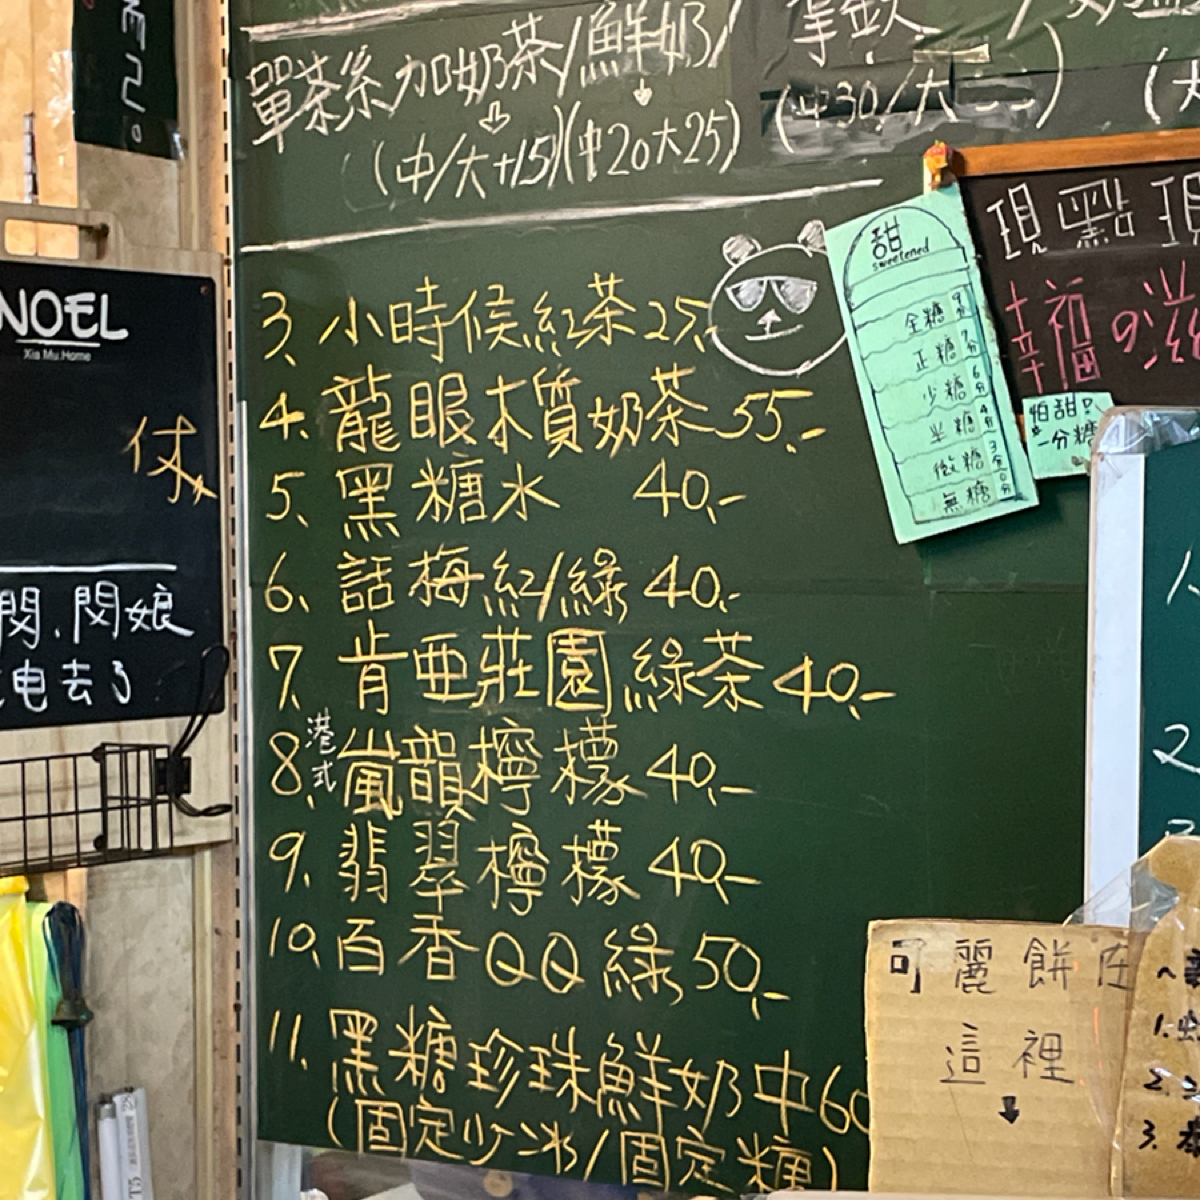 單茶系加奶茶/鮮奶/
(中/大+15)(中20大25)
(中30/大
3、小時候紅茶25.-
4.龍眼木質奶茶55.-
5、黑糖水 40.-
6、話梅紅/綠40.-
7、肯亞莊園綠茶40.-
8、港式嵐韻檸檬40.-
9、翡翠檸檬40.-
10、百香QQ綠50.-
11.黑糖珍珠鮮奶中60
(固定少冰/固定糖)
甜
sweetened
全糖9分
正糖7分
少糖6分
半糖4分
微糖3分
無糖0分
怕甜?
一分糖
現點現
幸福の滋
NOEL
Xia Mu.Home
休
閃、閃娘
电去了
可麗餅在
這裡
1.
2.
3.